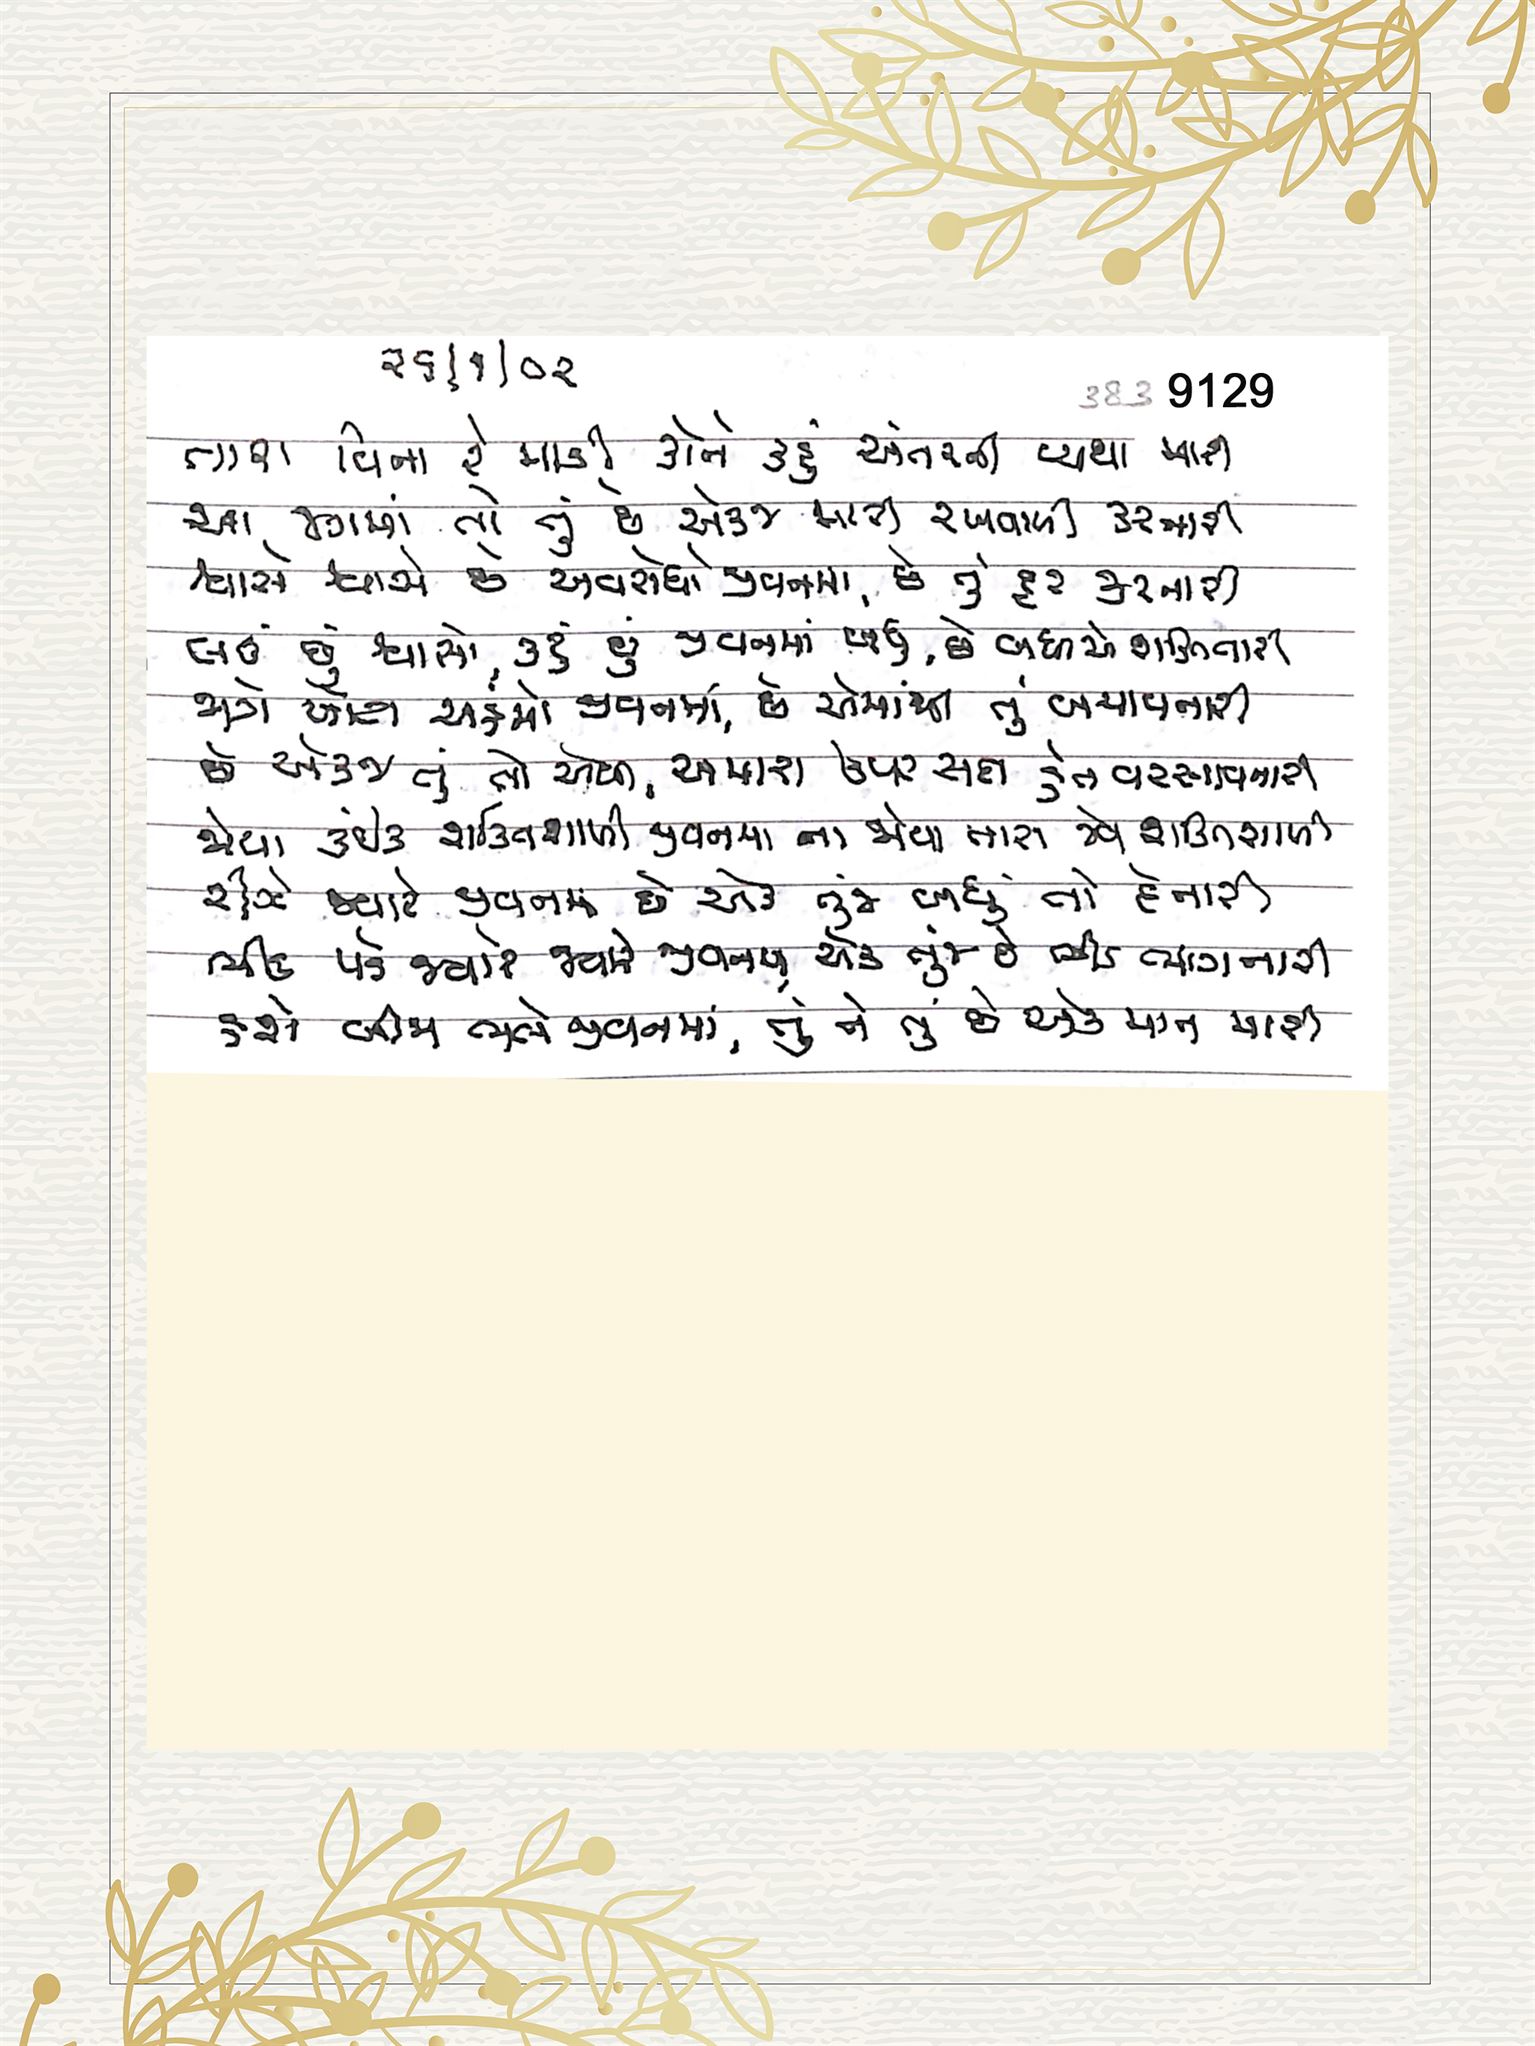 ૨૬/૧/૦૨
383 9129
તારા વિના રે માડી કોને કહું અંતરની વ્યથા મારી
આ જગમાં તો તું છે એકજ મારી રખવાળી કરનારી
શ્વાસે શ્વાસે છે અવરોધો જીવનમાં, છે તું દૂર કરનારી
લઉં છું શ્વાસો, કરું છું જીવનમાં બધું, છે બધીએ શક્તિ તારી
જાગે ખોટા અહંમો જીવનમાં, છે એમાંથી તું બચાવનારી
છે એકજ તું તો એવી, અમારા ઉપર સદા હેત વરસાવનારી
જોયા કંઈક શક્તિશાળી જીવનમાં ના જોયા તારા જેવા શક્તિશાળી
રીઝે જ્યારે જીવનમાં છે એક તુંજ બધું તો દેનારી
ભીડ પડે જ્યારે જ્યારે જીવનમાં, એક તુંજ છે ભીડ ભાંગનારી
કરશે બીજા ભલે જીવનમાં, તું ને તું છે એક માત મારી